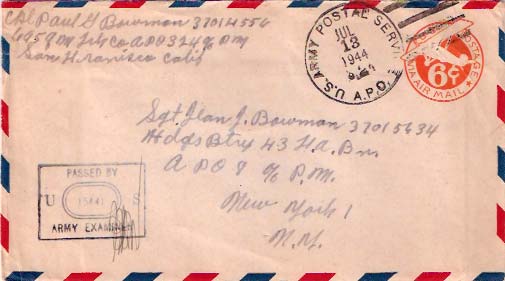 Cpl Paul G Bowman 37014556
Co A P O 324 % P M
San Francisco Calif
U.S. ARMY POSTAL SERVICE
JUL
13
1944
A.P.O.
POSTAGE
6¢
VIA AIR MAIL
Sgt. Jean J. Bowman 37015634
Hdqs Btry 43 F.A. Bn.
A P O 8 % P.M.
New York 1
N.Y.
PASSED BY
U S
15441
ARMY EXAMINER